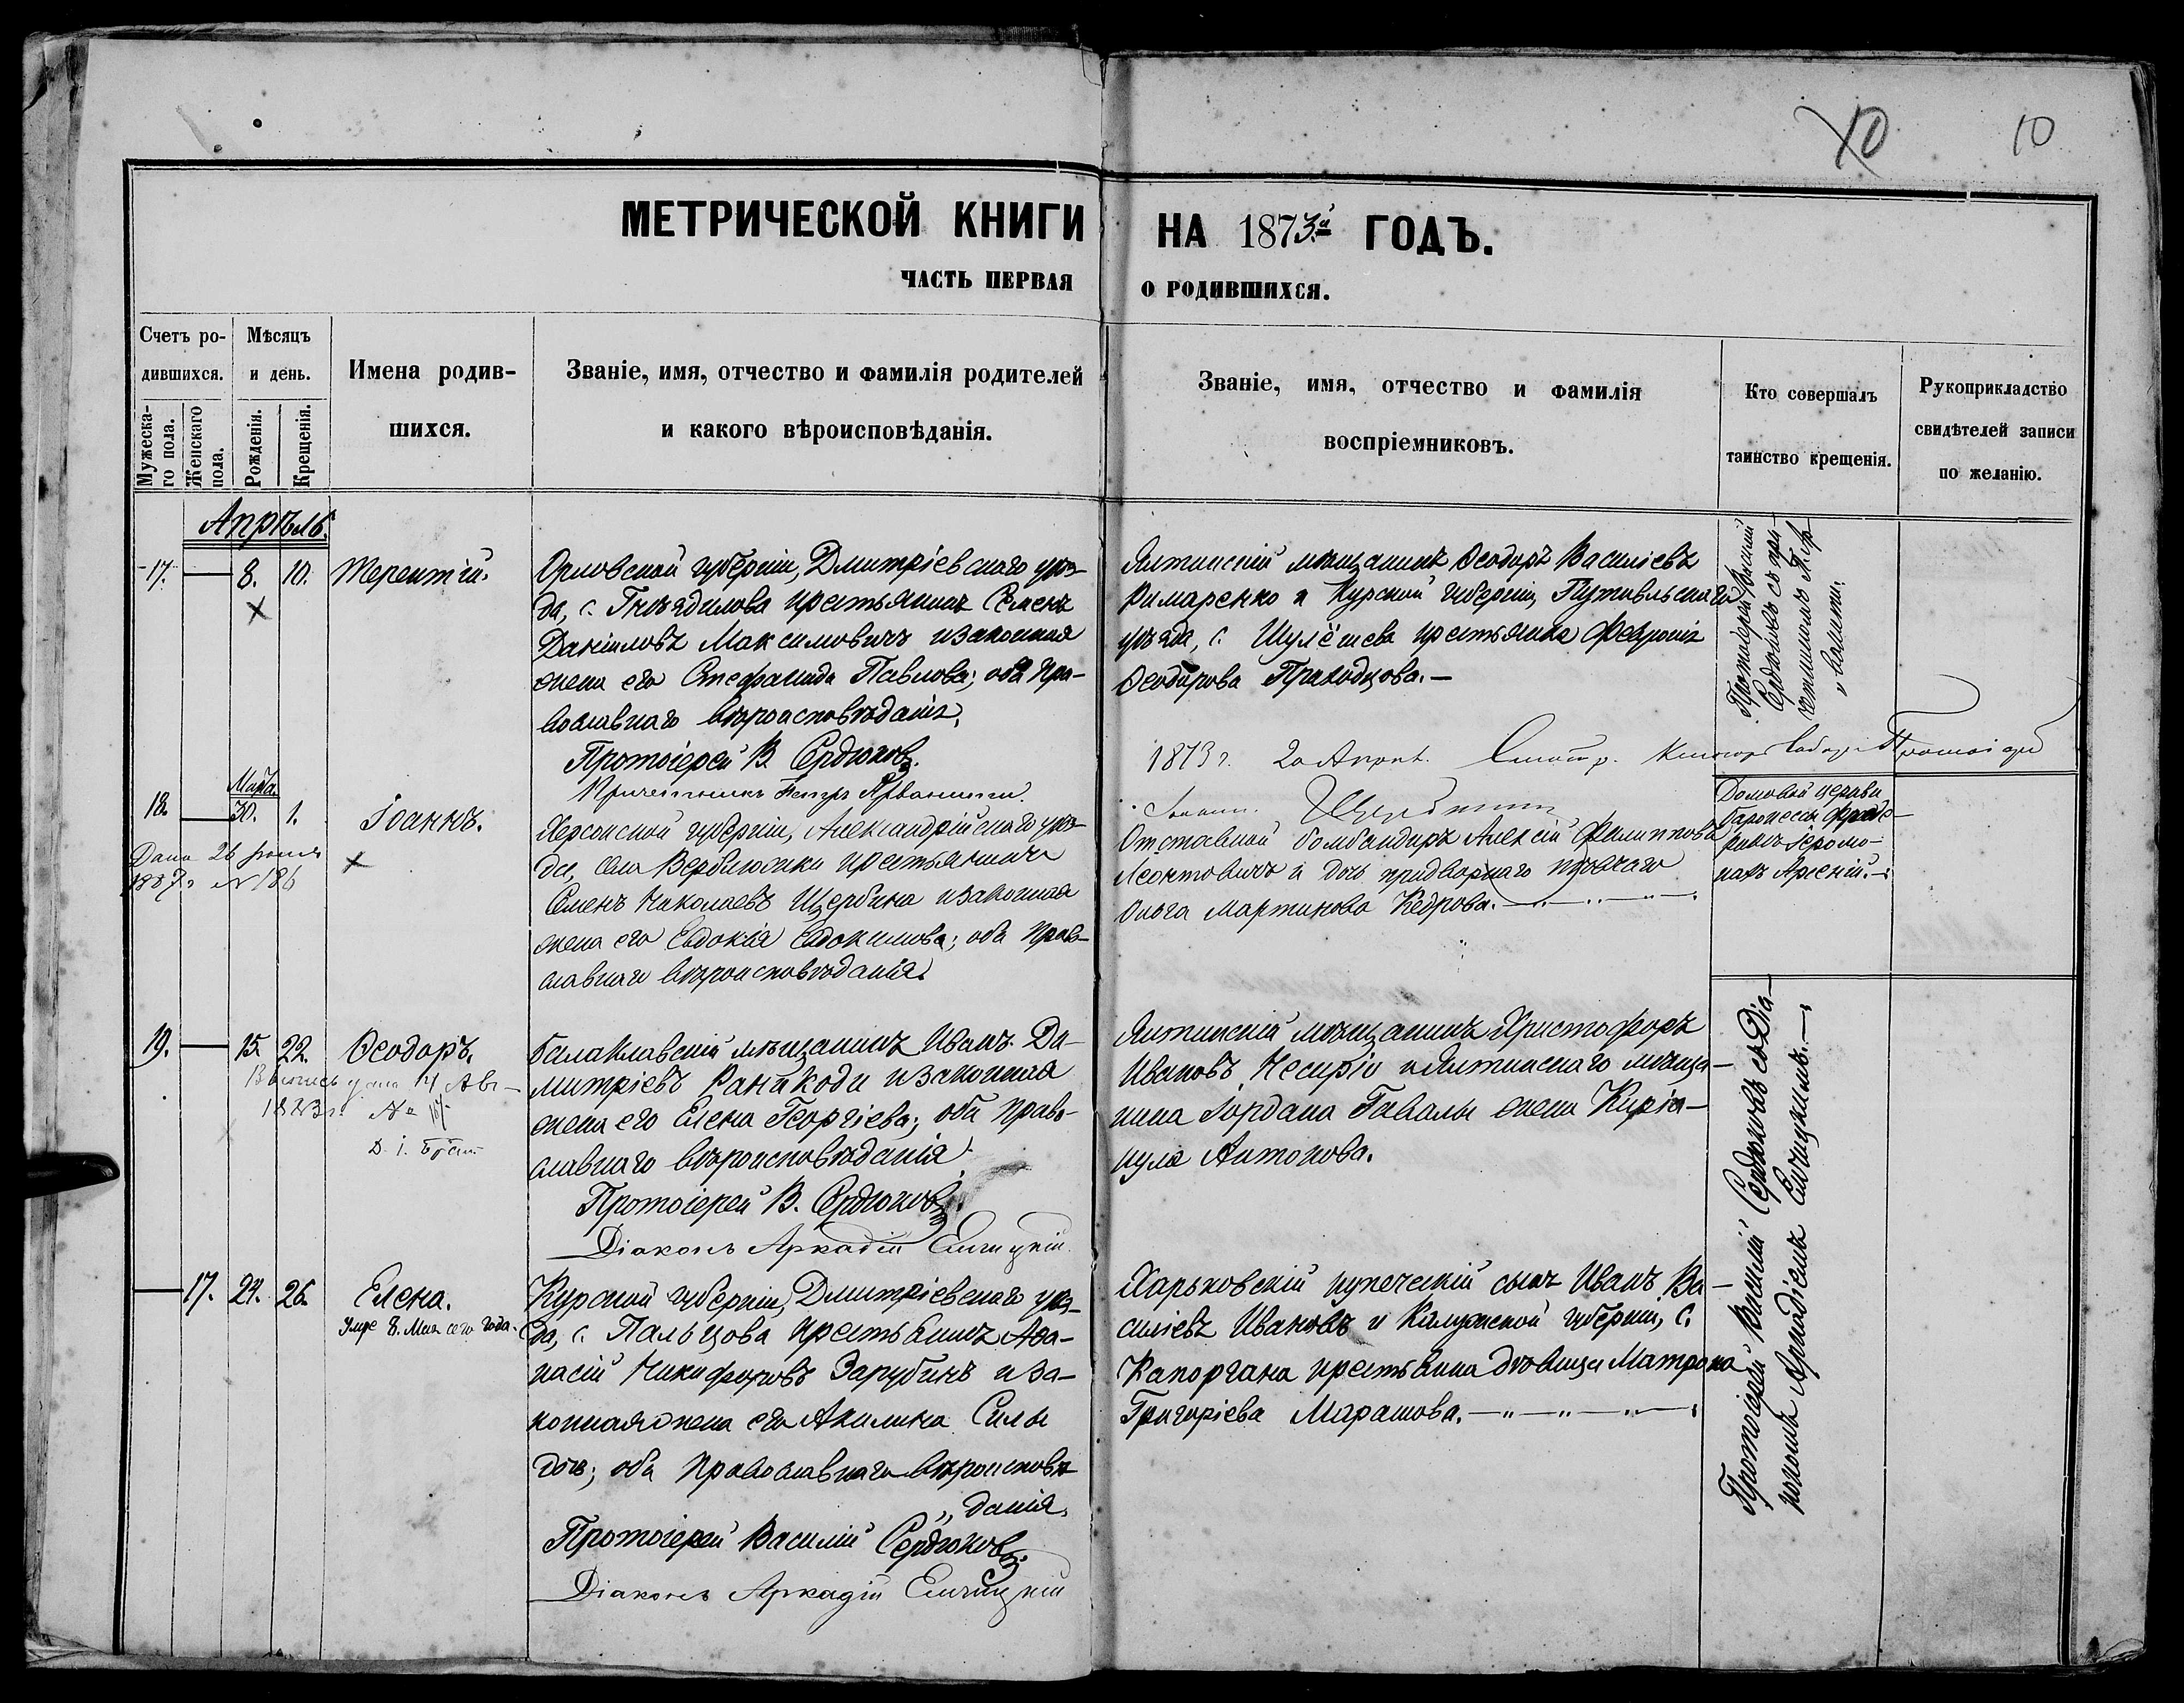 10
10
МЕТРИЧЕСКОЙ КНИГИ НА 1873й ГОДЪ.
ЧАСТЬ ПЕРВАЯ О РОДИВШИХСЯ.
Счетъ ро-
дившихся.
Мужеска-
го пола.
Женскаго
пола.
Мѣсяцъ
и день.
Рожденія.
Крещенія.
Имена родив-
шихся.
Званіе, имя, отчество и фамилія родителей
и какого вѣроисповѣданія.
Званіе, имя, отчество и фамилія
воспріемниковъ.
Кто совершалъ
таинство крещенія.
Рукоприкладство
свидѣтелей записи
по желанію.
Апрѣль.
17. — 8. 10. Терентій.
Орловской губерніи, Дмитріевскаго уѣз-
да, с. Гнѣздилова крестьянинъ Семенъ
Даніиловъ Максимовичъ и законная
жена его Стефанида Павлова; оба пра-
вославнаго вѣроисповѣданія.
Протоіерей В. Сердюковъ.
Причетникъ Петръ
Ялтинскій мѣщанинъ Ѳеодоръ Василіевъ
Римаренко и Курской губерніи, Путивльскаго
уѣзда, с. Шулёшева крестьянка Февронія
Ѳеодорова Приходцова. —
Протоіерей Василій
Сердюковъ съ при-
четникомъ Петр.
1873 г. 20 Апрѣл.
Протоіерей
Марта.
18. — 30. 1. Іоаннъ.
Дана 26 Іюня
1887 г. № 186
Херсонской губерніи, Александрійскаго уѣз-
да, села Вербилюжки крестьянинъ
Семенъ Николаевъ Щербина и законная
жена его Евдокія Евдокимова; оба право-
славнаго вѣроисповѣданія.
Отставной бомбандиръ Алексій Филипповъ
Леонтовичъ и дочь придворнаго пѣвчаго
Ольга Мартинова Кедрова. — „ — „ — „ —
Домовой церкви
баронессы Фреде-
риксъ Іеромо-
нахъ Арсеній. —
19. — 15. 22. Ѳеодоръ.
14 Авг
№
Балаклавскій мѣщанинъ Иванъ Ди-
митріевъ Раникоди и законная
жена его Елена Георгіева; оба право-
славнаго вѣроисповѣданія.
Протоіерей В. Сердюковъ.
Діаконъ Аркадій
Ялтинскій мѣщанинъ Христофоръ
Ивановъ Чесиріо и Ялтинскаго мѣща-
нина Іордана Гавалы жена Киріа-
кула Антонова.
— 17. 24. 26. Елена.
Умре 8. Мая сего года.
Курской губерніи, Дмитріевскаго уѣз-
да, с. Пальцова крестьянинъ Аѳа-
насій Никифоровъ Зарубинъ и за-
конная жена его Акилина Силы
дочь; оба православнаго вѣроисповѣ-
„ данія.
Протоіерей Василій Сердюковъ.
Діаконъ Аркадій
Харьковскій купеческій сынъ Иванъ Ва-
силіевъ Ивановъ и Калужской губерніи, с.
Капоргана крестьянка дѣвица Матрона
Григоріева Марашова. — „ — „ — „ —
Протоіерей Василій Сердюковъ съ Діа-
кономъ Аркадіемъ